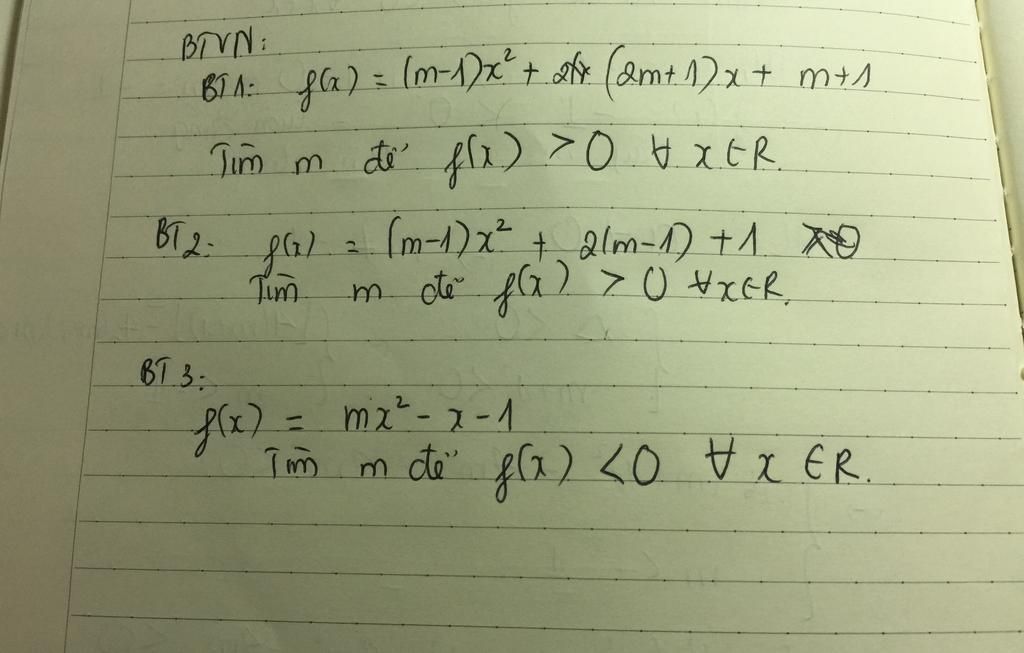 BTVN:
BT1: f(x) = (m-1)x² + (2m+1)x + m+1
Tìm m để f(x) > 0 ∀ x ∈ R.
BT2: f(x) = (m-1)x² + 2(m-1) + 1
Tìm m để f(x) > 0 ∀x∈R.
BT3:
f(x) = mx² - x - 1
Tìm m để f(x) < 0 ∀ x ∈ R.